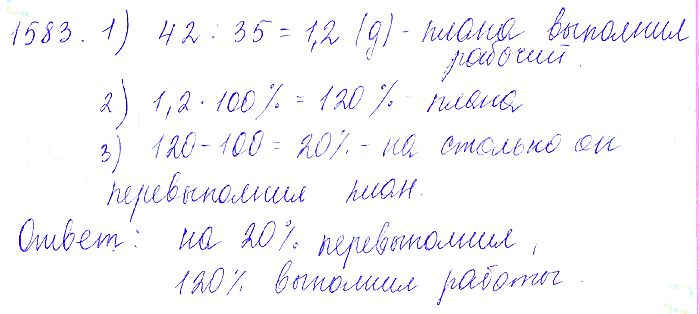 1583. 1) 42 : 35 = 1,2 (д) - плана выполнил
рабочий.
2) 1,2 · 100% = 120% - плана
3) 120 - 100 = 20% - на столько он
перевыполнил план.
Ответ: на 20% перевыполнил,
120% выполнил работы.